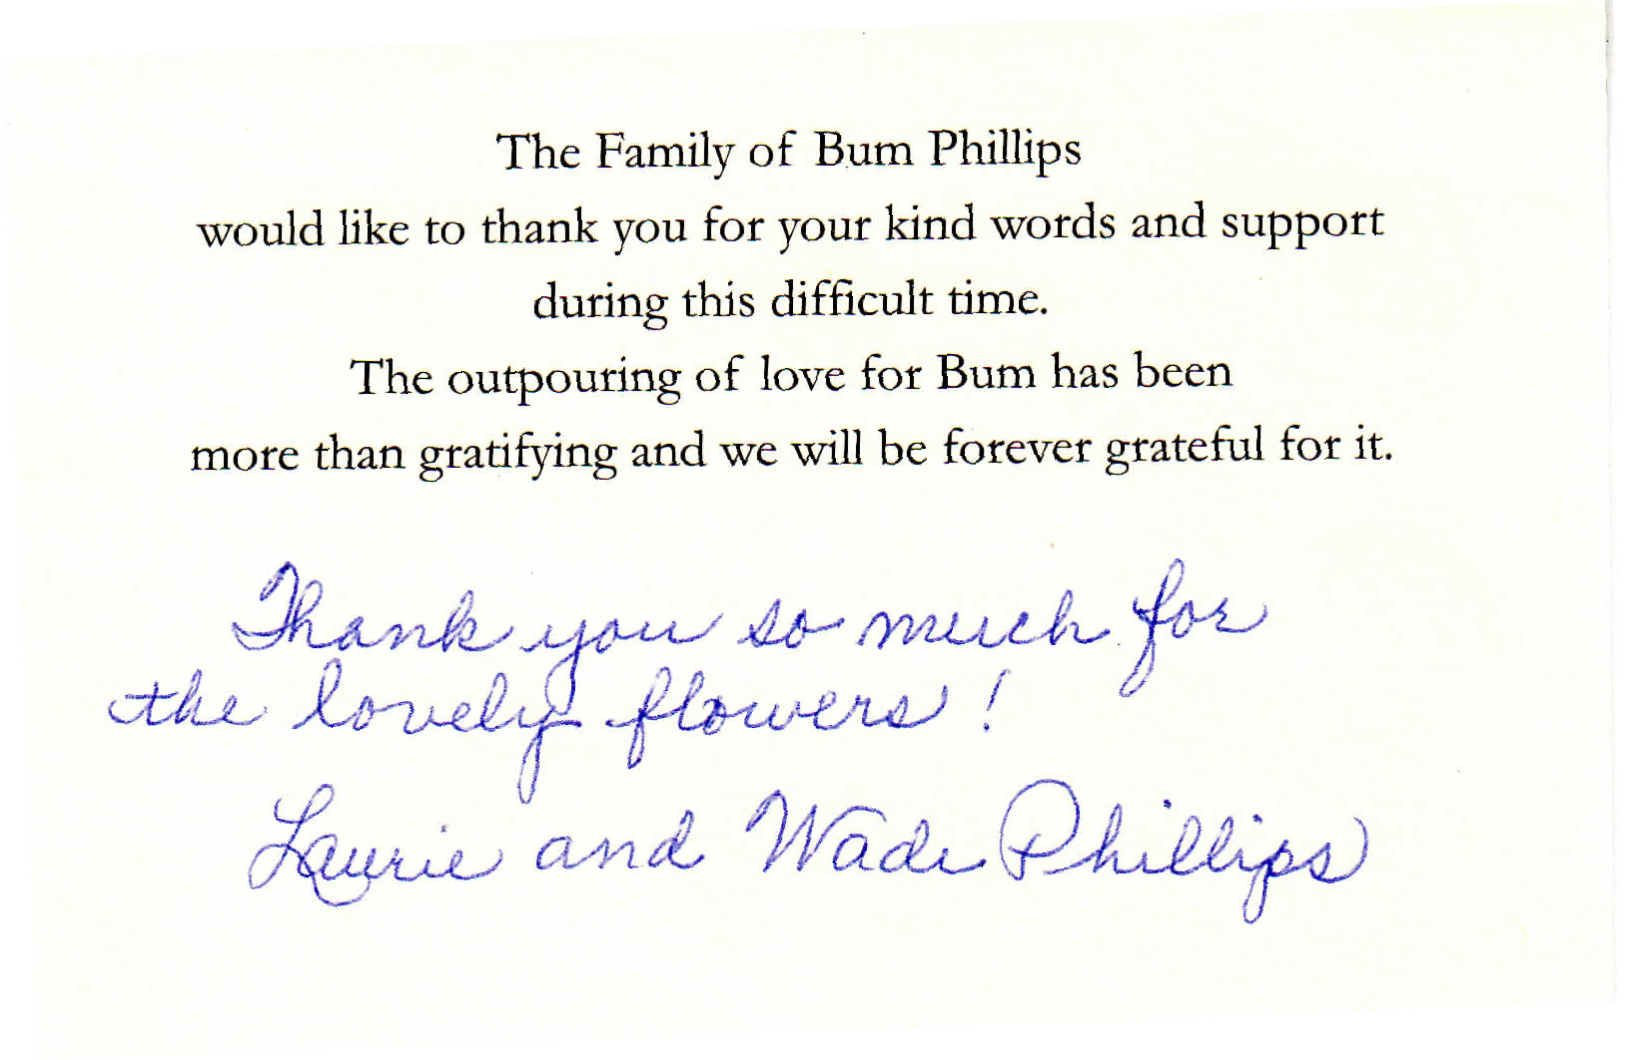 The Family of Bum Phillips
would like to thank you for your kind words and support
during this difficult time.
The outpouring of love for Bum has been
more than gratifying and we will be forever grateful for it.
Thank you so much for
the lovely flowers!
Laurie and Wade Phillips